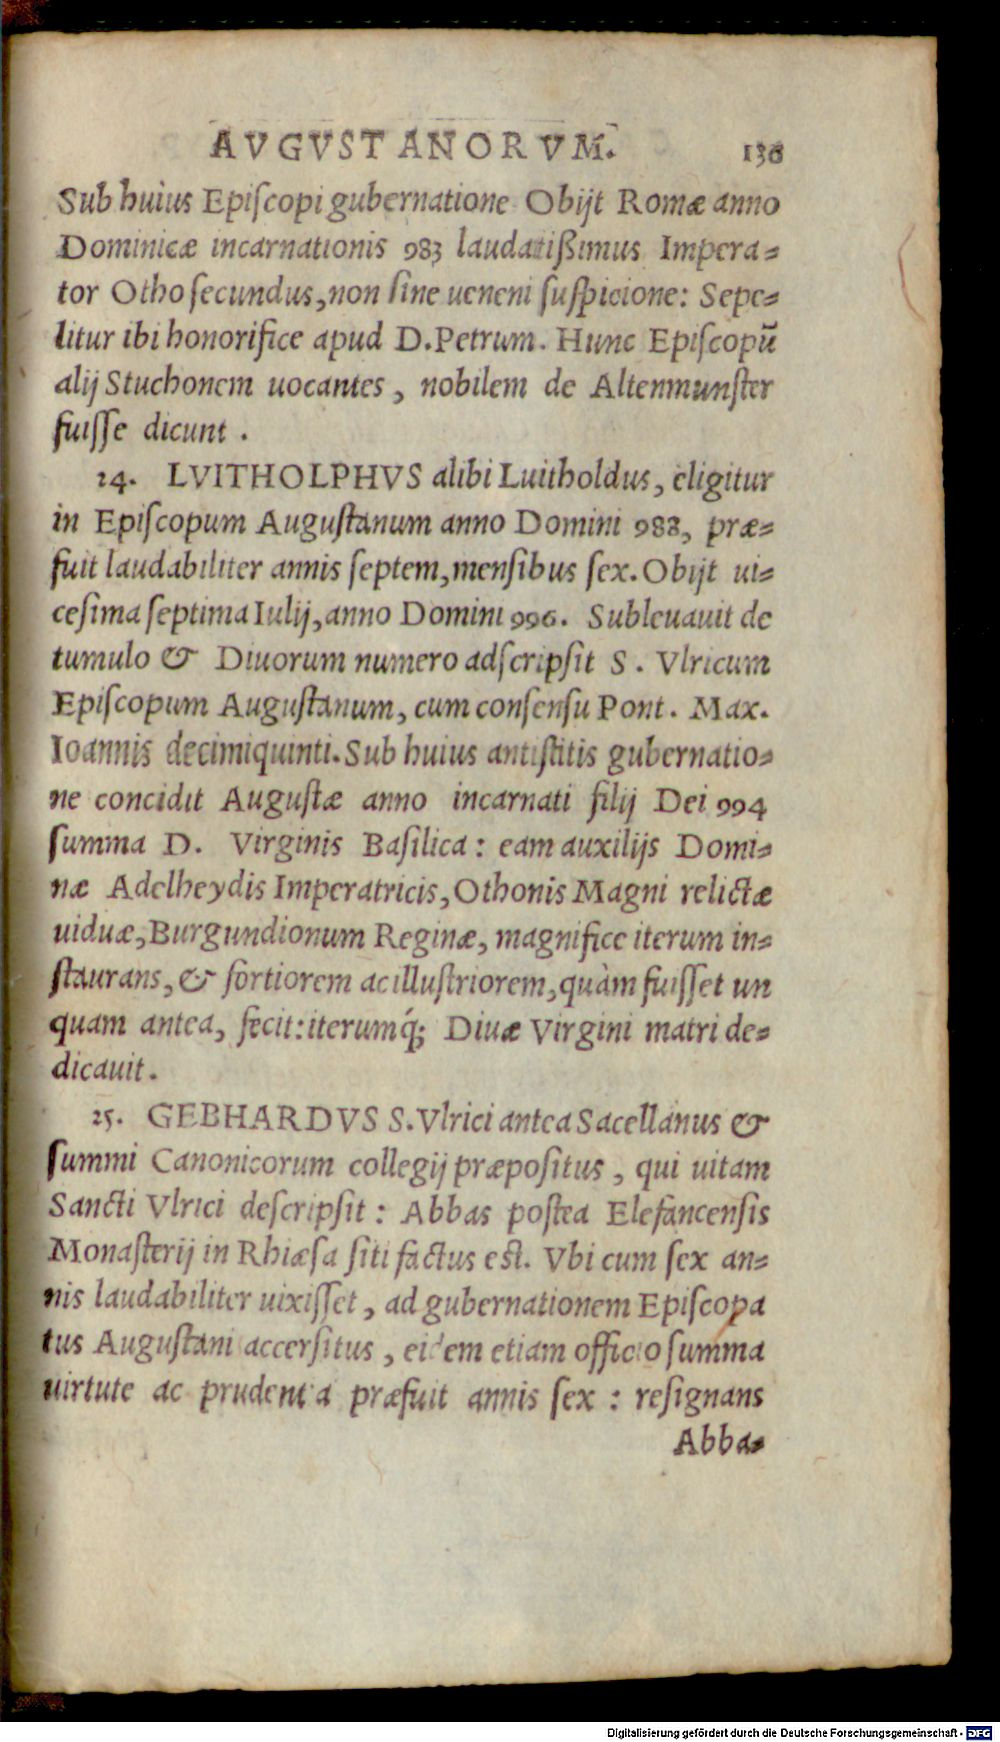 AVGVSTANORVM. 136
Sub huius Epiſcopi gubernatione Obijt Romæ anno
Dominicæ incarnationis 983 laudatißimus Impera-
tor Otho ſecundus, non ſine ueneni ſuſpicione: Sepe-
litur ibi honorifice apud D. Petrum. Hunc Epiſcopū
alij Stuchonem uocantes, nobilem de Altenmunſter
fuiſſe dicunt.
24. LVITHOLPHVS alibi Luitholdus, eligitur
in Epiſcopum Auguſtanum anno Domini 988, præ-
fuit laudabiliter annis ſeptem, menſibus ſex. Obijt ui-
ceſima ſeptima Iulij, anno Domini 996. Subleuauit de
tumulo & Diuorum numero adſcripſit S. Vlricum
Epiſcopum Auguſtanum, cum conſenſu Pont. Max.
Ioannis decimiquinti. Sub huius antiſtitis gubernatio-
ne concidit Auguſtæ anno incarnati filij Dei 994
ſumma D. Virginis Baſilica: eam auxilijs Domi-
næ Adelheydis Imperatricis, Othonis Magni relictæ
uiduæ, Burgundionum Reginæ, magnifice iterum in-
ſtaurans, & fortiorem ac illuſtriorem, quàm fuiſſet un
quam antea, fecit: iterumq́; Diuæ Virgini matri de-
dicauit.
25. GEBHARDVS S. Vlrici antea Sacellanus &
ſummi Canonicorum collegij præpoſitus, qui uitam
Sancti Vlrici deſcripſit: Abbas poſtea Elefancenſis
Monaſterij in Rhiæſa ſiti factus eſt. Vbi cum ſex an-
nis laudabiliter uixiſſet, ad gubernationem Epiſcopa
tus Auguſtani accerſitus, eidem etiam officio ſumma
uirtute ac prudentia præfuit annis ſex: reſignans
Abba-
Digitalisierung gefördert durch die Deutsche Forschungsgemeinschaft - DFG